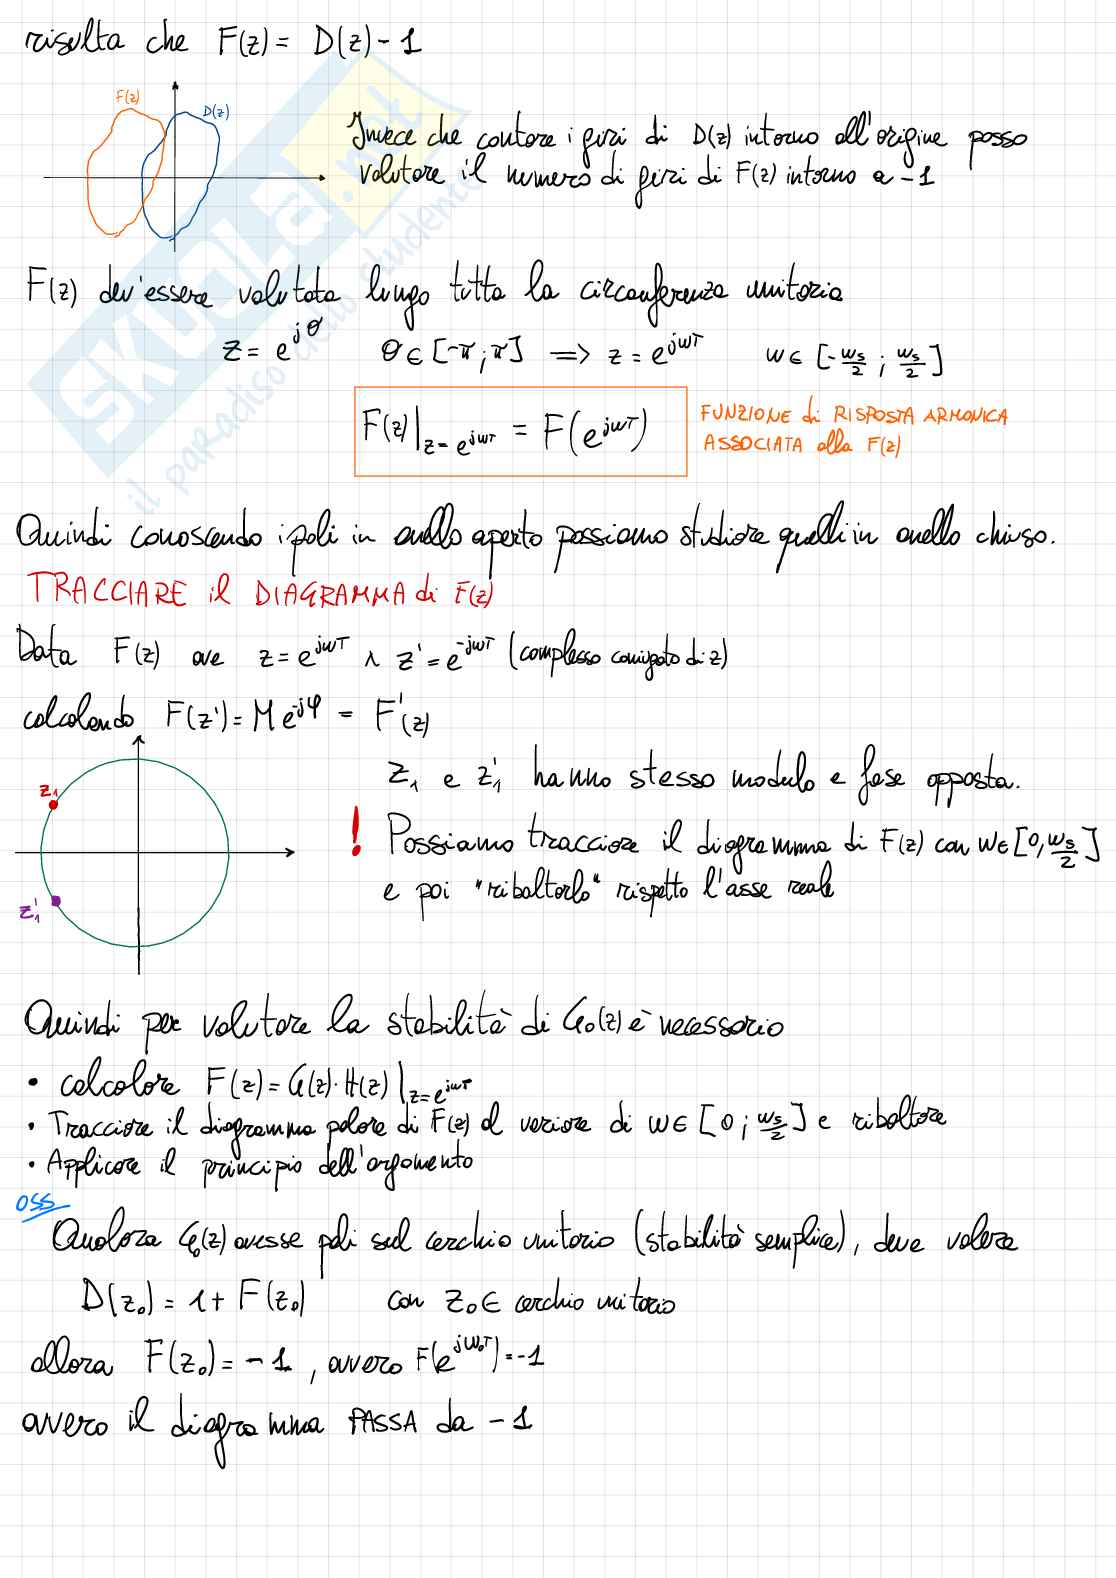 risulta che F(z) = D(z) - 1
F(z)
D(z)
Invece che contare i giri di D(z) intorno all'origine posso
valutare il numero di giri di F(z) intorno a -1
F(z) dev'essere valutata lungo tutta la circonferenza unitaria
z = e^{jθ} θ ∈ [-π ; π] => z = e^{jωT} ω ∈ [-ωs/2 ; ωs/2]
F(z)|_{z = e^{jωT}} = F(e^{jωT})
FUNZIONE di RISPOSTA ARMONICA
ASSOCIATA alla F(z)
Quindi conoscendo i poli in anello aperto possiamo studiare quelli in anello chiuso.
TRACCIARE il DIAGRAMMA di F(z)
Data F(z) ove z = e^{jωT} ∧ z' = e^{-jωT} (complesso coniugato di z)
calcolando F(z') = M e^{-jφ} = F'(z)
z₁
z₁'
z₁ e z₁' hanno stesso modulo e fase opposta.
! Possiamo tracciare il diagramma di F(z) con ω ∈ [0, ωs/2]
e poi "ribaltarlo" rispetto l'asse reale
Quindi per valutare la stabilità di G₀(z) è necessario
• calcolare F(z) = G(z)·H(z)|_{z = e^{jωT}}
• Tracciare il diagramma polare di F(z) al variare di ω ∈ [0 ; ωs/2] e ribaltare
• Applicare il principio dell'argomento
OSS
Qualora G₀(z) avesse poli sul cerchio unitario (stabilità semplice), deve valere
D(z₀) = 1 + F(z₀) con z₀ ∈ cerchio unitario
allora F(z₀) = -1, ovvero F(e^{jω₀T}) = -1
ovvero il diagramma PASSA da -1
SKUOLA.net
il paradiso dello studente